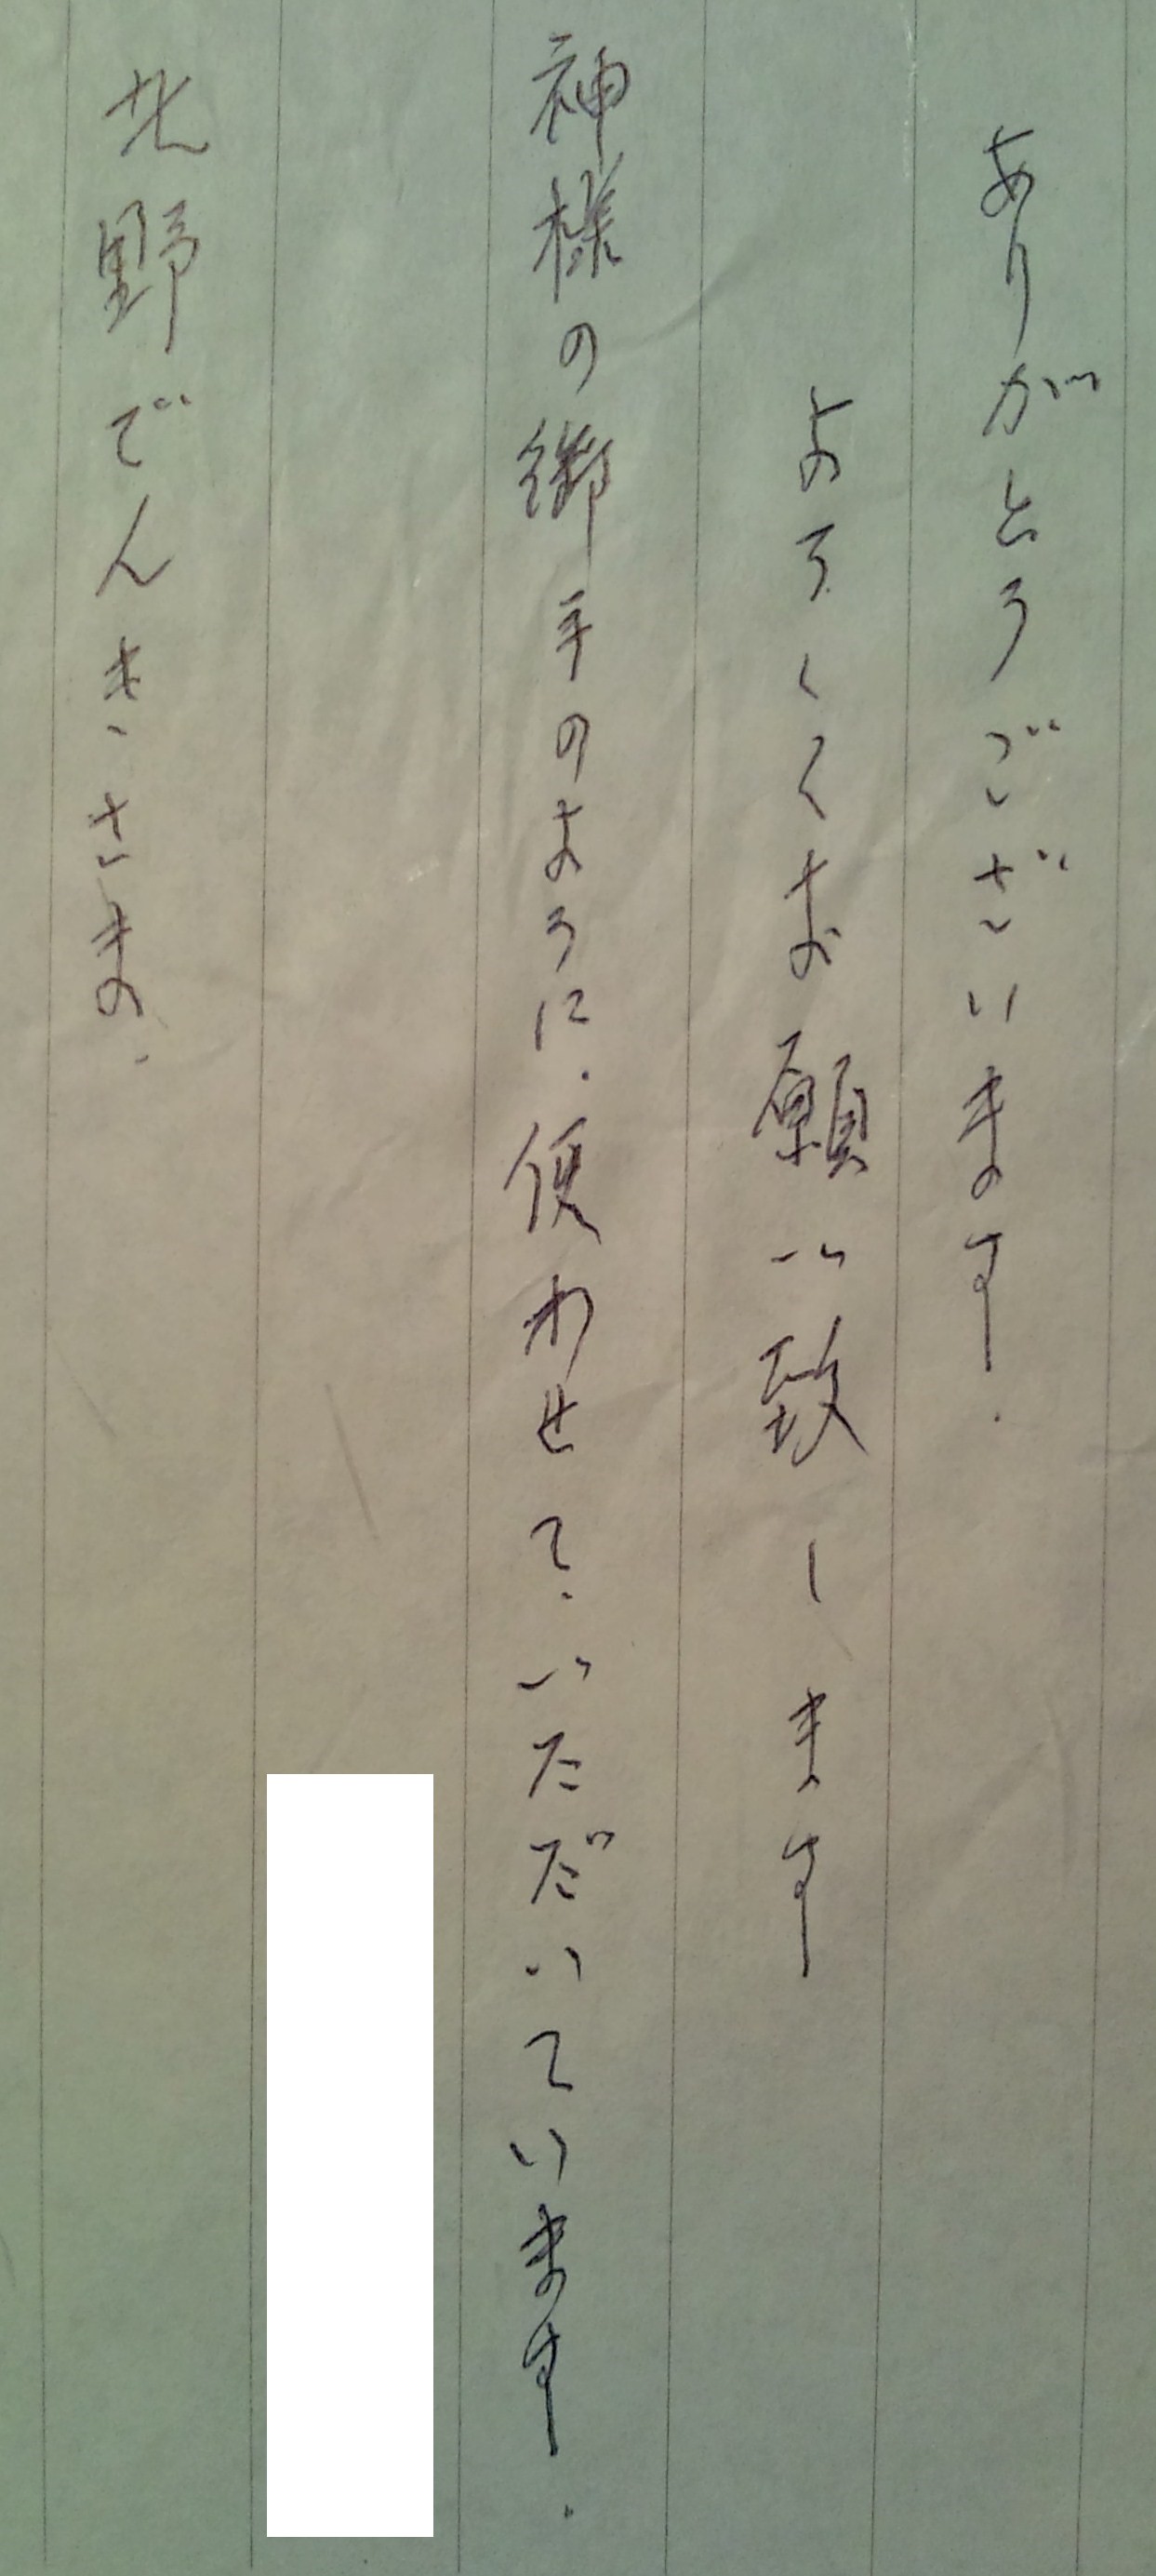 ありがとうございます.
よろしくお願い致します
神様の御手のように.使わせて.いただいています.
北野でんきさま.